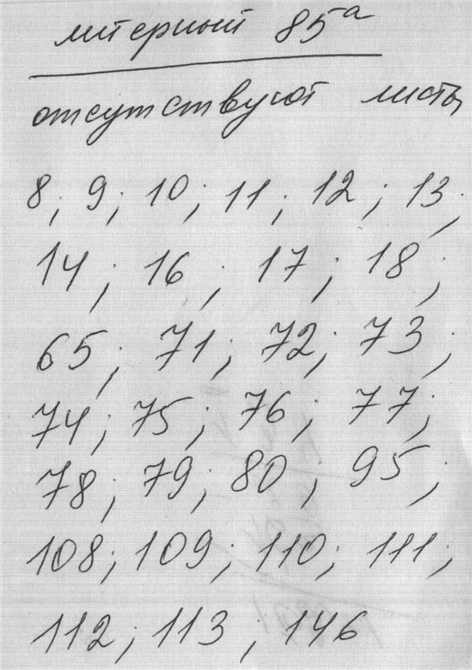 литерный 85а
отсутствуют листы
8; 9; 10; 11; 12; 13;
14; 16; 17; 18;
65; 71; 72; 73;
74; 75; 76; 77;
78; 79; 80; 95;
108; 109; 110; 111;
112; 113; 146